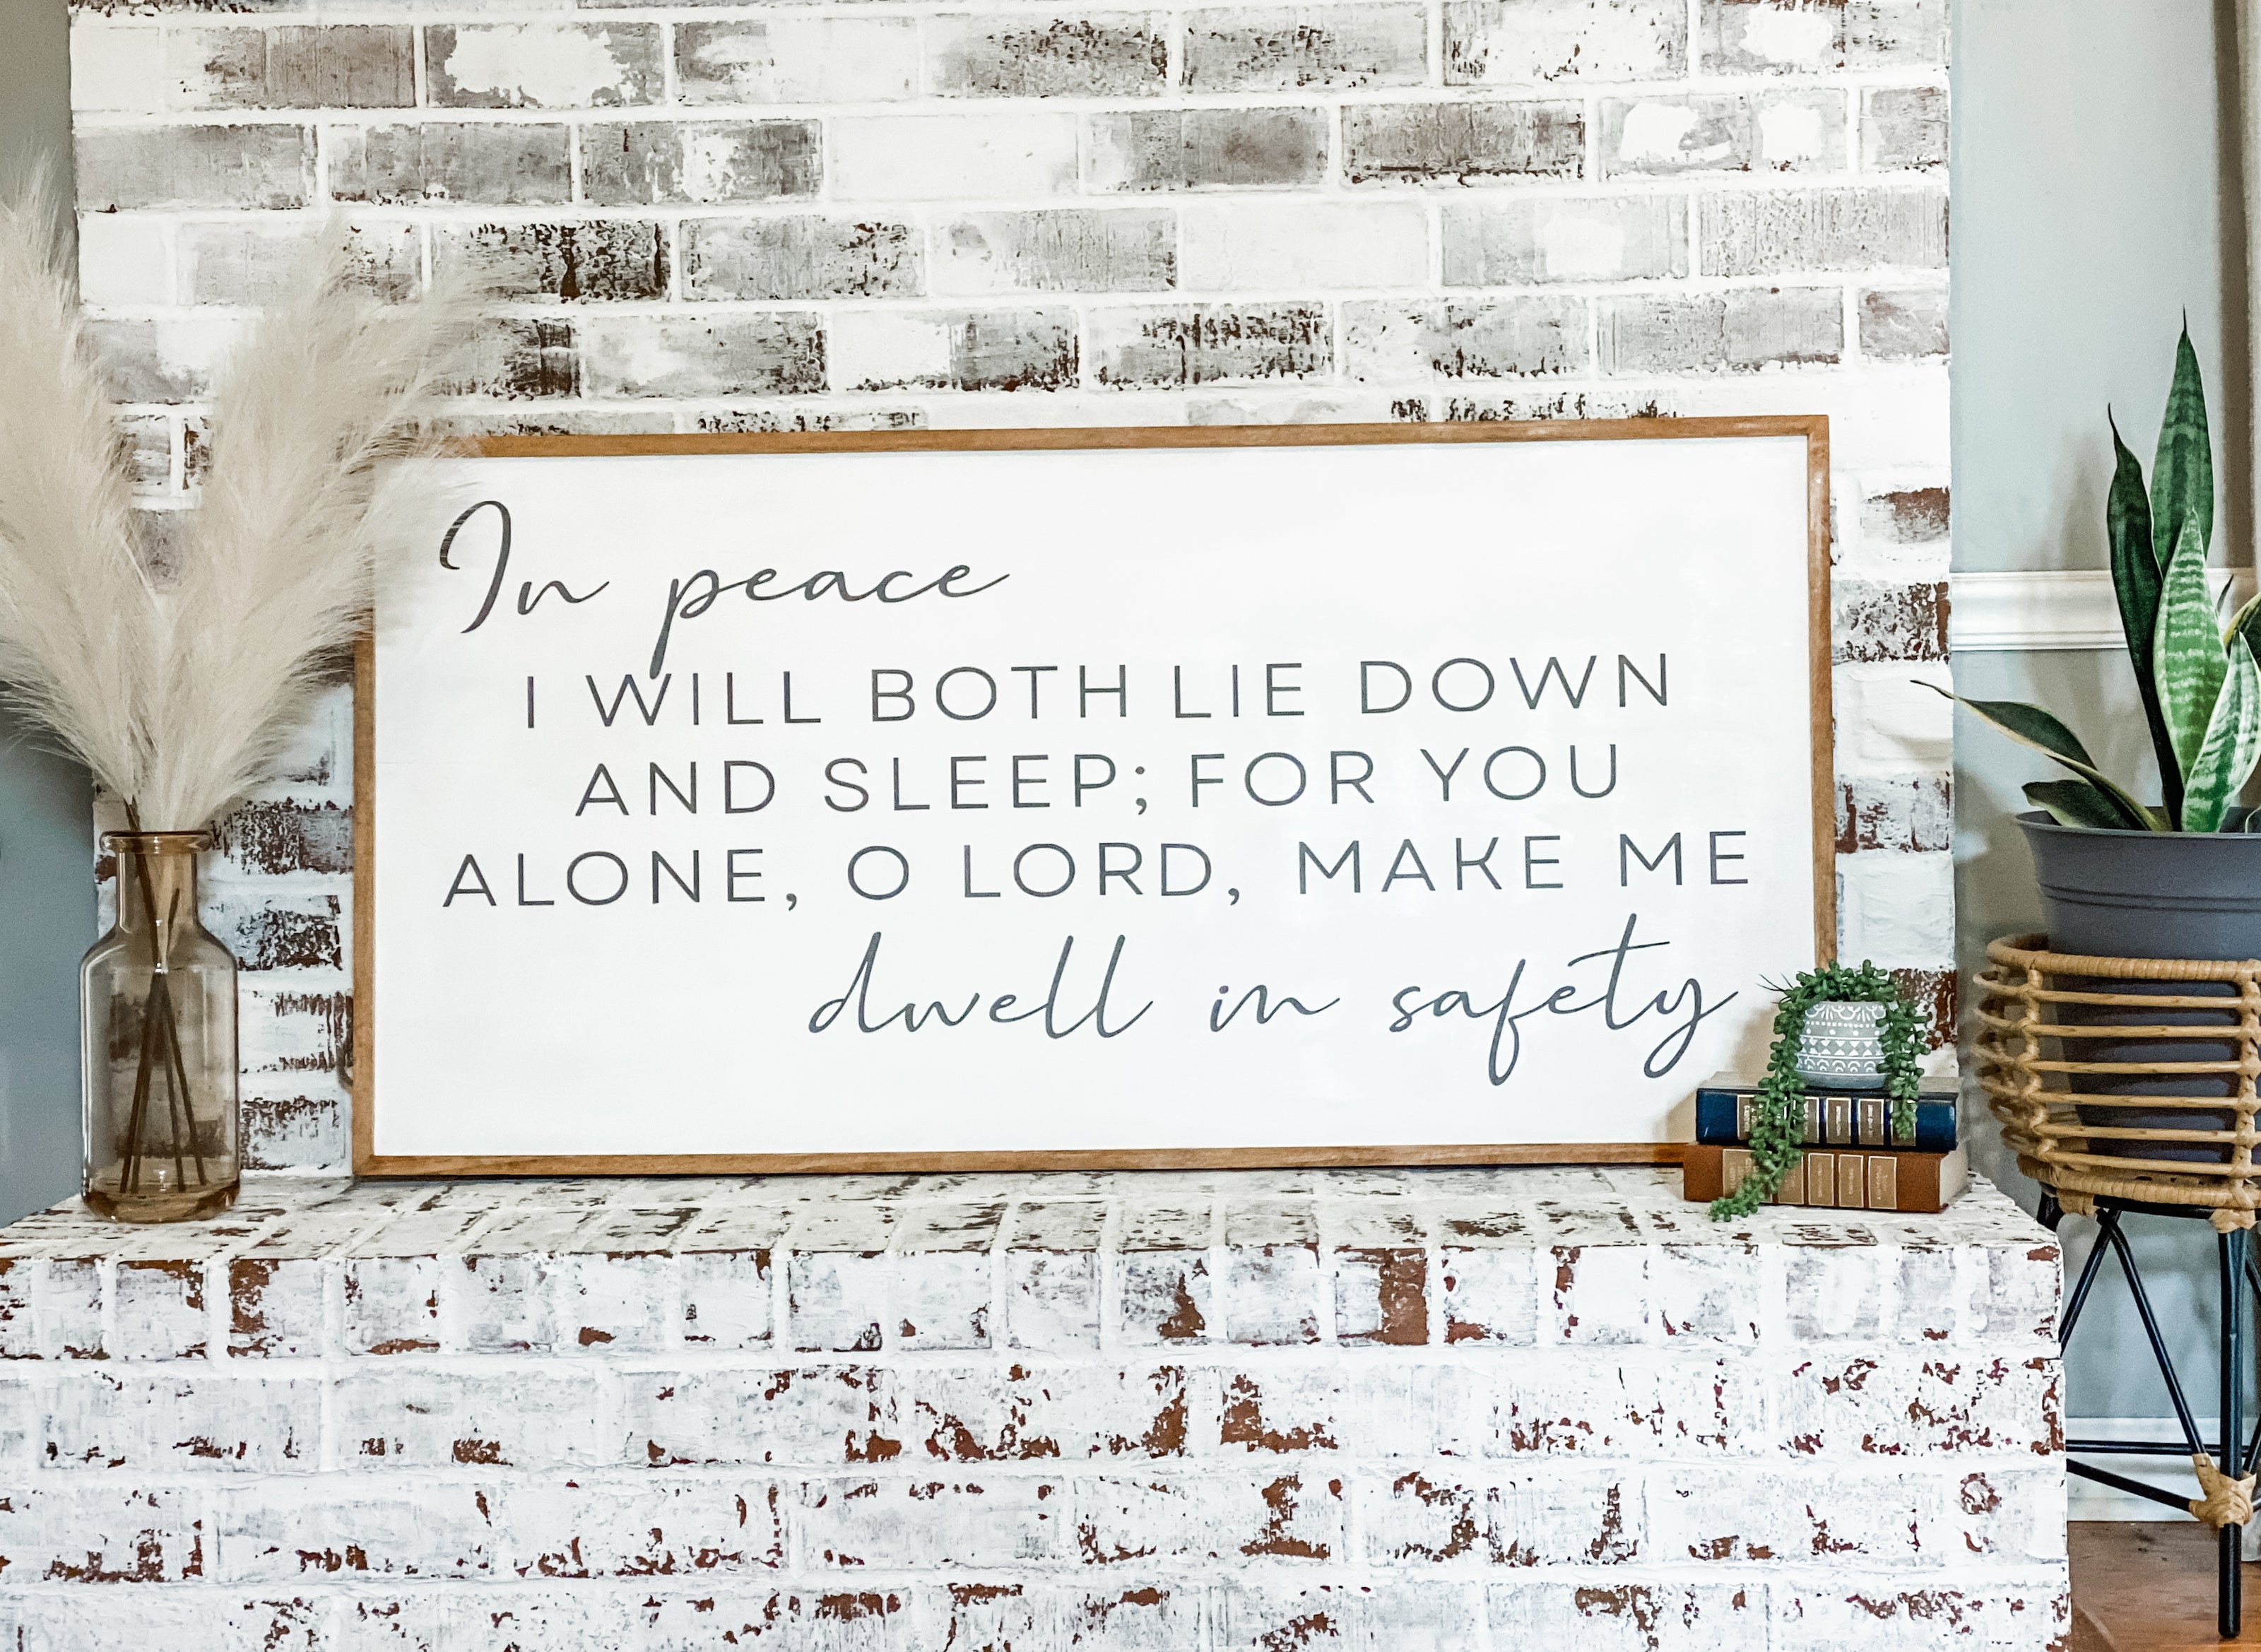 In peace
I WILL BOTH LIE DOWN
AND SLEEP; FOR YOU
ALONE, O LORD, MAKE ME
dwell in safety